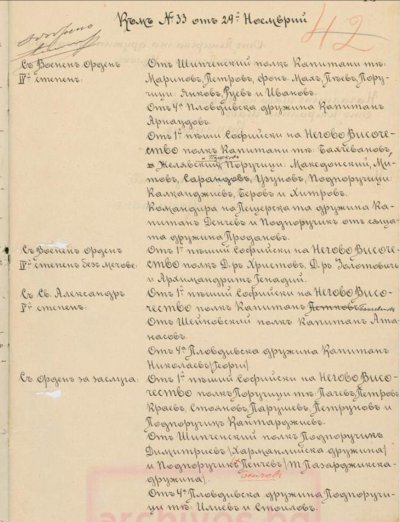 Къмъ № 33 отъ 29й Ноемврий
42
Съ Военен Орденъ
IVа степень:
Отъ Шипченский полкъ Капитани тѣ:
Мариновъ, Петровъ, фонъ Махъ, Пѣевъ, Пору-
чици: Янковъ, Русевъ и Ивановъ.
Отъ 4а Пловдивска дружина Капитанъ
Арнаудовъ.
Отъ 1й пѣши Софийски на Негово Височе-
ство полкъ Капитани тѣ:
Желявский, Поручици: Македонский, Ми-
товъ, Сарандовъ, Урумовъ, Подпоручици:
Калканджиевъ, Беровъ и Хитровъ.
Командира на Пещерска та дружина Ка-
питанъ Денчевъ и Подпоручикъ отъ съща-
та дружина Продановъ.
Съ Военен Орденъ
IVа степень безъ мечове:
Отъ 1й пѣши Софийски на Негово Височе-
ство полкъ Д-ръ Христовъ, Д-ръ Золотовичъ
и Архимандритъ Генадий.
Съ Св. Александръ
Vа степень:
Отъ 1й пѣши Софийски на Негово Висо-
чество полкъ Капитанъ
Отъ Шейновский полкъ Капитанъ Ата-
насовъ.
Отъ 4а Пловдивска дружина Капитанъ
Николаевъ (Георги)
Съ Орденъ за заслуга:
Отъ 1й пѣши Софийски на Негово Висо-
чество полкъ Поручици тѣ: Пачевъ, Петровъ,
Краевъ, Стояновъ, Парушевъ, Петруновъ и
Подпоручикъ Кантарджиевъ.
Отъ Шипченский полкъ Подпоручикъ
Димитриевъ (Харманлийска дружина)
и Подпоручикъ Пенчевъ (Т. Пазарджикска
дружина).
Отъ 4а Пловдивска дружина Подпоручи-
ци тѣ: Илиевъ и Стоиловъ.
archives.bg